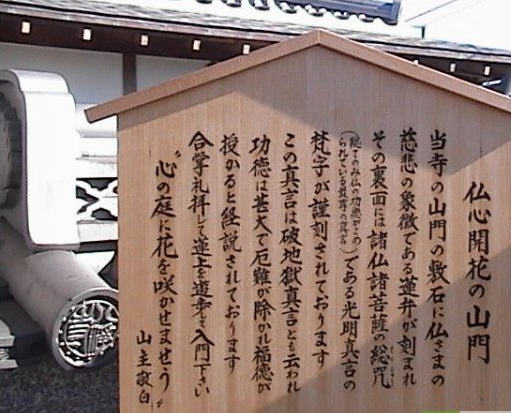 仏心開花の山門
当寺の山門の敷石に仏さまの
慈悲の象徴である蓮弁が刻まれ
その裏面には諸仏諸菩薩の総咒
(総てのみ仏の功徳がこの
られている最尊の真言)である光明真言の
梵字が謹刻されております
この真言は破地獄真言とも云われ
功徳は甚大で厄難が除かれ福徳が
授かると経説されております
合掌礼拝して蓮上を進歩し入門下さい
〝心の庭に花を咲かせませう〟
山主敬白